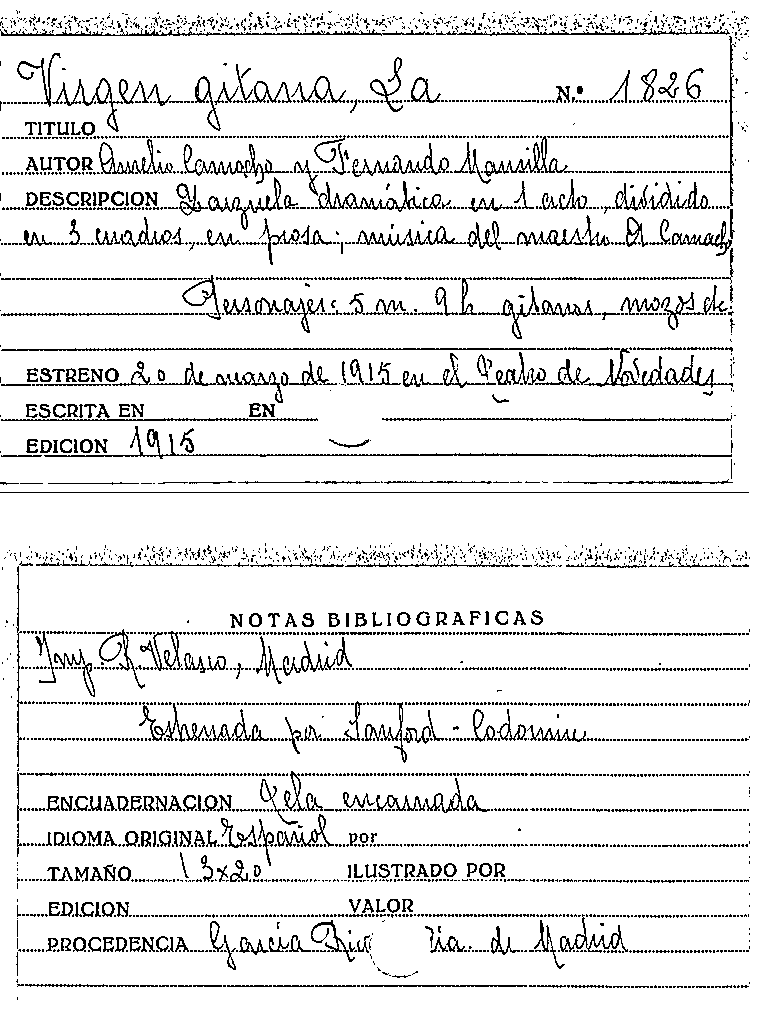 Virgen gitana, La N.º 1826
TITULO
AUTOR Amelio Camacho y Fernando Mansilla
DESCRIPCION Zarzuela dramática en 1 acto, dividido
en 3 cuadros, en prosa; música del maestro A Camach
Personajes: 5 m. 9 h gitanos, mozos etc.
ESTRENO 20 de marzo de 1915 en el Teatro de Novedades
ESCRITA EN EN
EDICION 1915
NOTAS BIBLIOGRAFICAS
Imp. R. Velasco, Madrid
Estrenada por Sanford -
ENCUADERNACION Tela encarnada
IDIOMA ORIGINAL Español por
TAMAÑO 13x20 ILUSTRADO POR
EDICION VALOR
PROCEDENCIA García Rico de Madrid